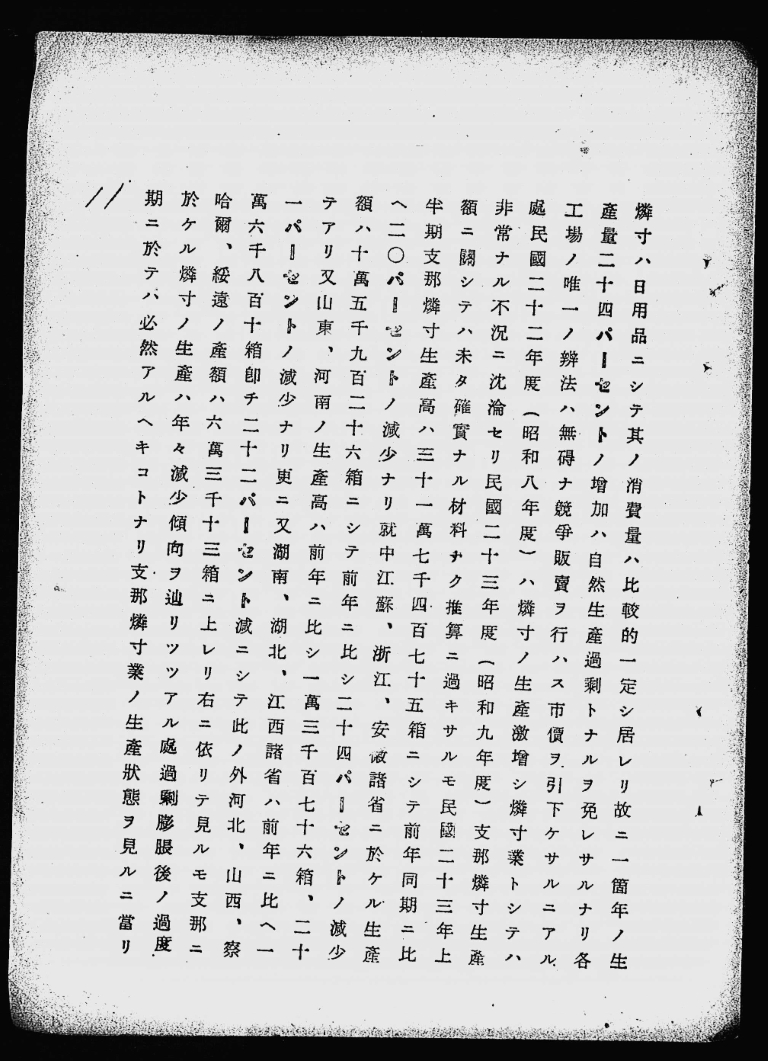 燐寸ハ日用品ニシテ其ノ消費量ハ比較的一定シ居レリ故ニ一箇年ノ生
產量二十四パーセントノ增加ハ自然生產過剩トナルヲ免レサルナリ各
工場ノ唯一ノ辨法ハ無碍ナ競爭販賣ヲ行ハス市價ヲ引下ケサルニアル
處民國二十二年度（昭和八年度）ハ燐寸ノ生產激增シ燐寸業トシテハ
非常ナル不況ニ沈淪セリ民國二十三年度（昭和九年度）支那燐寸生產
額ニ關シテハ未タ確實ナル材料ナク推算ニ過キサルモ民國二十三年上
半期支那燐寸生產高ハ三十一萬七千四百七十五箱ニシテ前年同期ニ比
ヘ二〇パーセントノ減少ナリ就中江蘇、浙江、安徽諸省ニ於ケル生產
額ハ十萬五千九百二十六箱ニシテ前年ニ比シ二十四パーセントノ減少
テアリ又山東、河南ノ生產高ハ前年ニ比シ一萬三千百七十六箱、二十
一パーセントノ減少ナリ更ニ又湖南、湖北、江西諸省ハ前年ニ比ヘ一
萬六千八百十箱卽チ二十二パーセント減ニシテ此ノ外河北、山西、察
哈爾、綏遠ノ產額ハ六萬三千十三箱ニ上レリ右ニ依リテ見ルモ支那ニ
於ケル燐寸ノ生產ハ年々減少傾向ヲ辿リツツアル處過剩膨脹後ノ過度
期ニ於テハ必然アルヘキコトナリ支那燐寸業ノ生產狀態ヲ見ルニ當リ